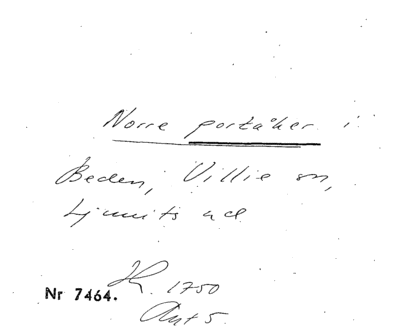 Norre portåker i
Beden, Villie sn,
Ljunits hd
Nr 7464.
H. 1750
Ant 5.